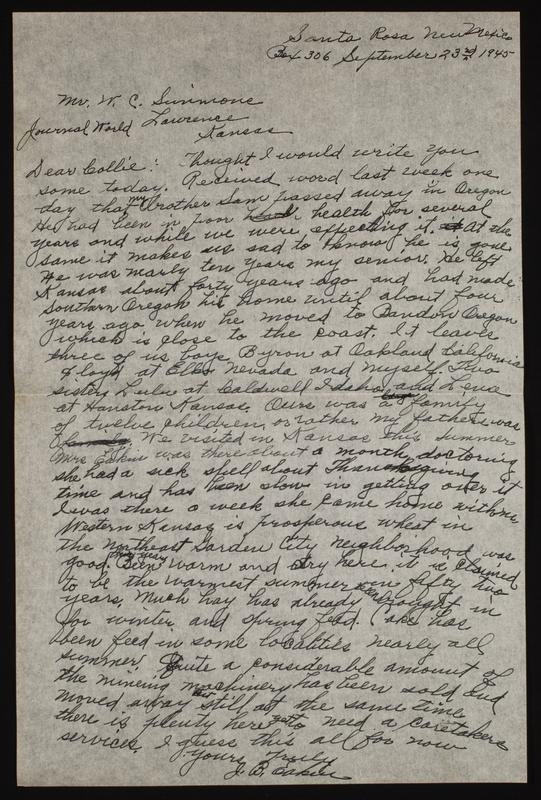 Santa Rosa New Mexico
Box 306 September 23rd 1945
Mr. W. C. Simmons
Journal World Lawrence
Kansas
Dear Collie: Thought I would write you
some today. Received word last week one
day that my brother Sam passed away in Oregon
He had been in poor health for several
years and while we were expecting it, at the
same it makes us sad to know he is gone
He was nearly ten years my senior. He left
Kansas about forty years ago and had made
Southern Oregon his home until about four
years ago when he moved to Bandon Oregon
which is close to the coast. It leaves
three of us boys Byron at Oakland California
Floyd at Elko Nevada and myself. Two
sisters Lulu at Caldwell Idaho and Lena
at Hanston Kansas. Ours was a family
of twelve children, or rather my fathers was
We visited in Kansas this summer
Mrs Eakin was there about a month, doctoring
she had a sick spell about Thanksgiving
time and has been slow in getting over it
I was there a week she came home with me
Western Kansas is prosperous wheat in
the northeast Garden City neighborhood was
good. Been very warm and dry here. it is claimed
to be the warmest summer in fifty two
years. Much hay has already been bought in
for winter and spring feed. has
been feed in some localities nearly all
summer. Quite a considerable amount of
the mining machinery has been sold and
moved away still at the same time
there is plenty here yet to need a caretakers
services. I guess this all for now
Yours Truly
J. B. Eakin